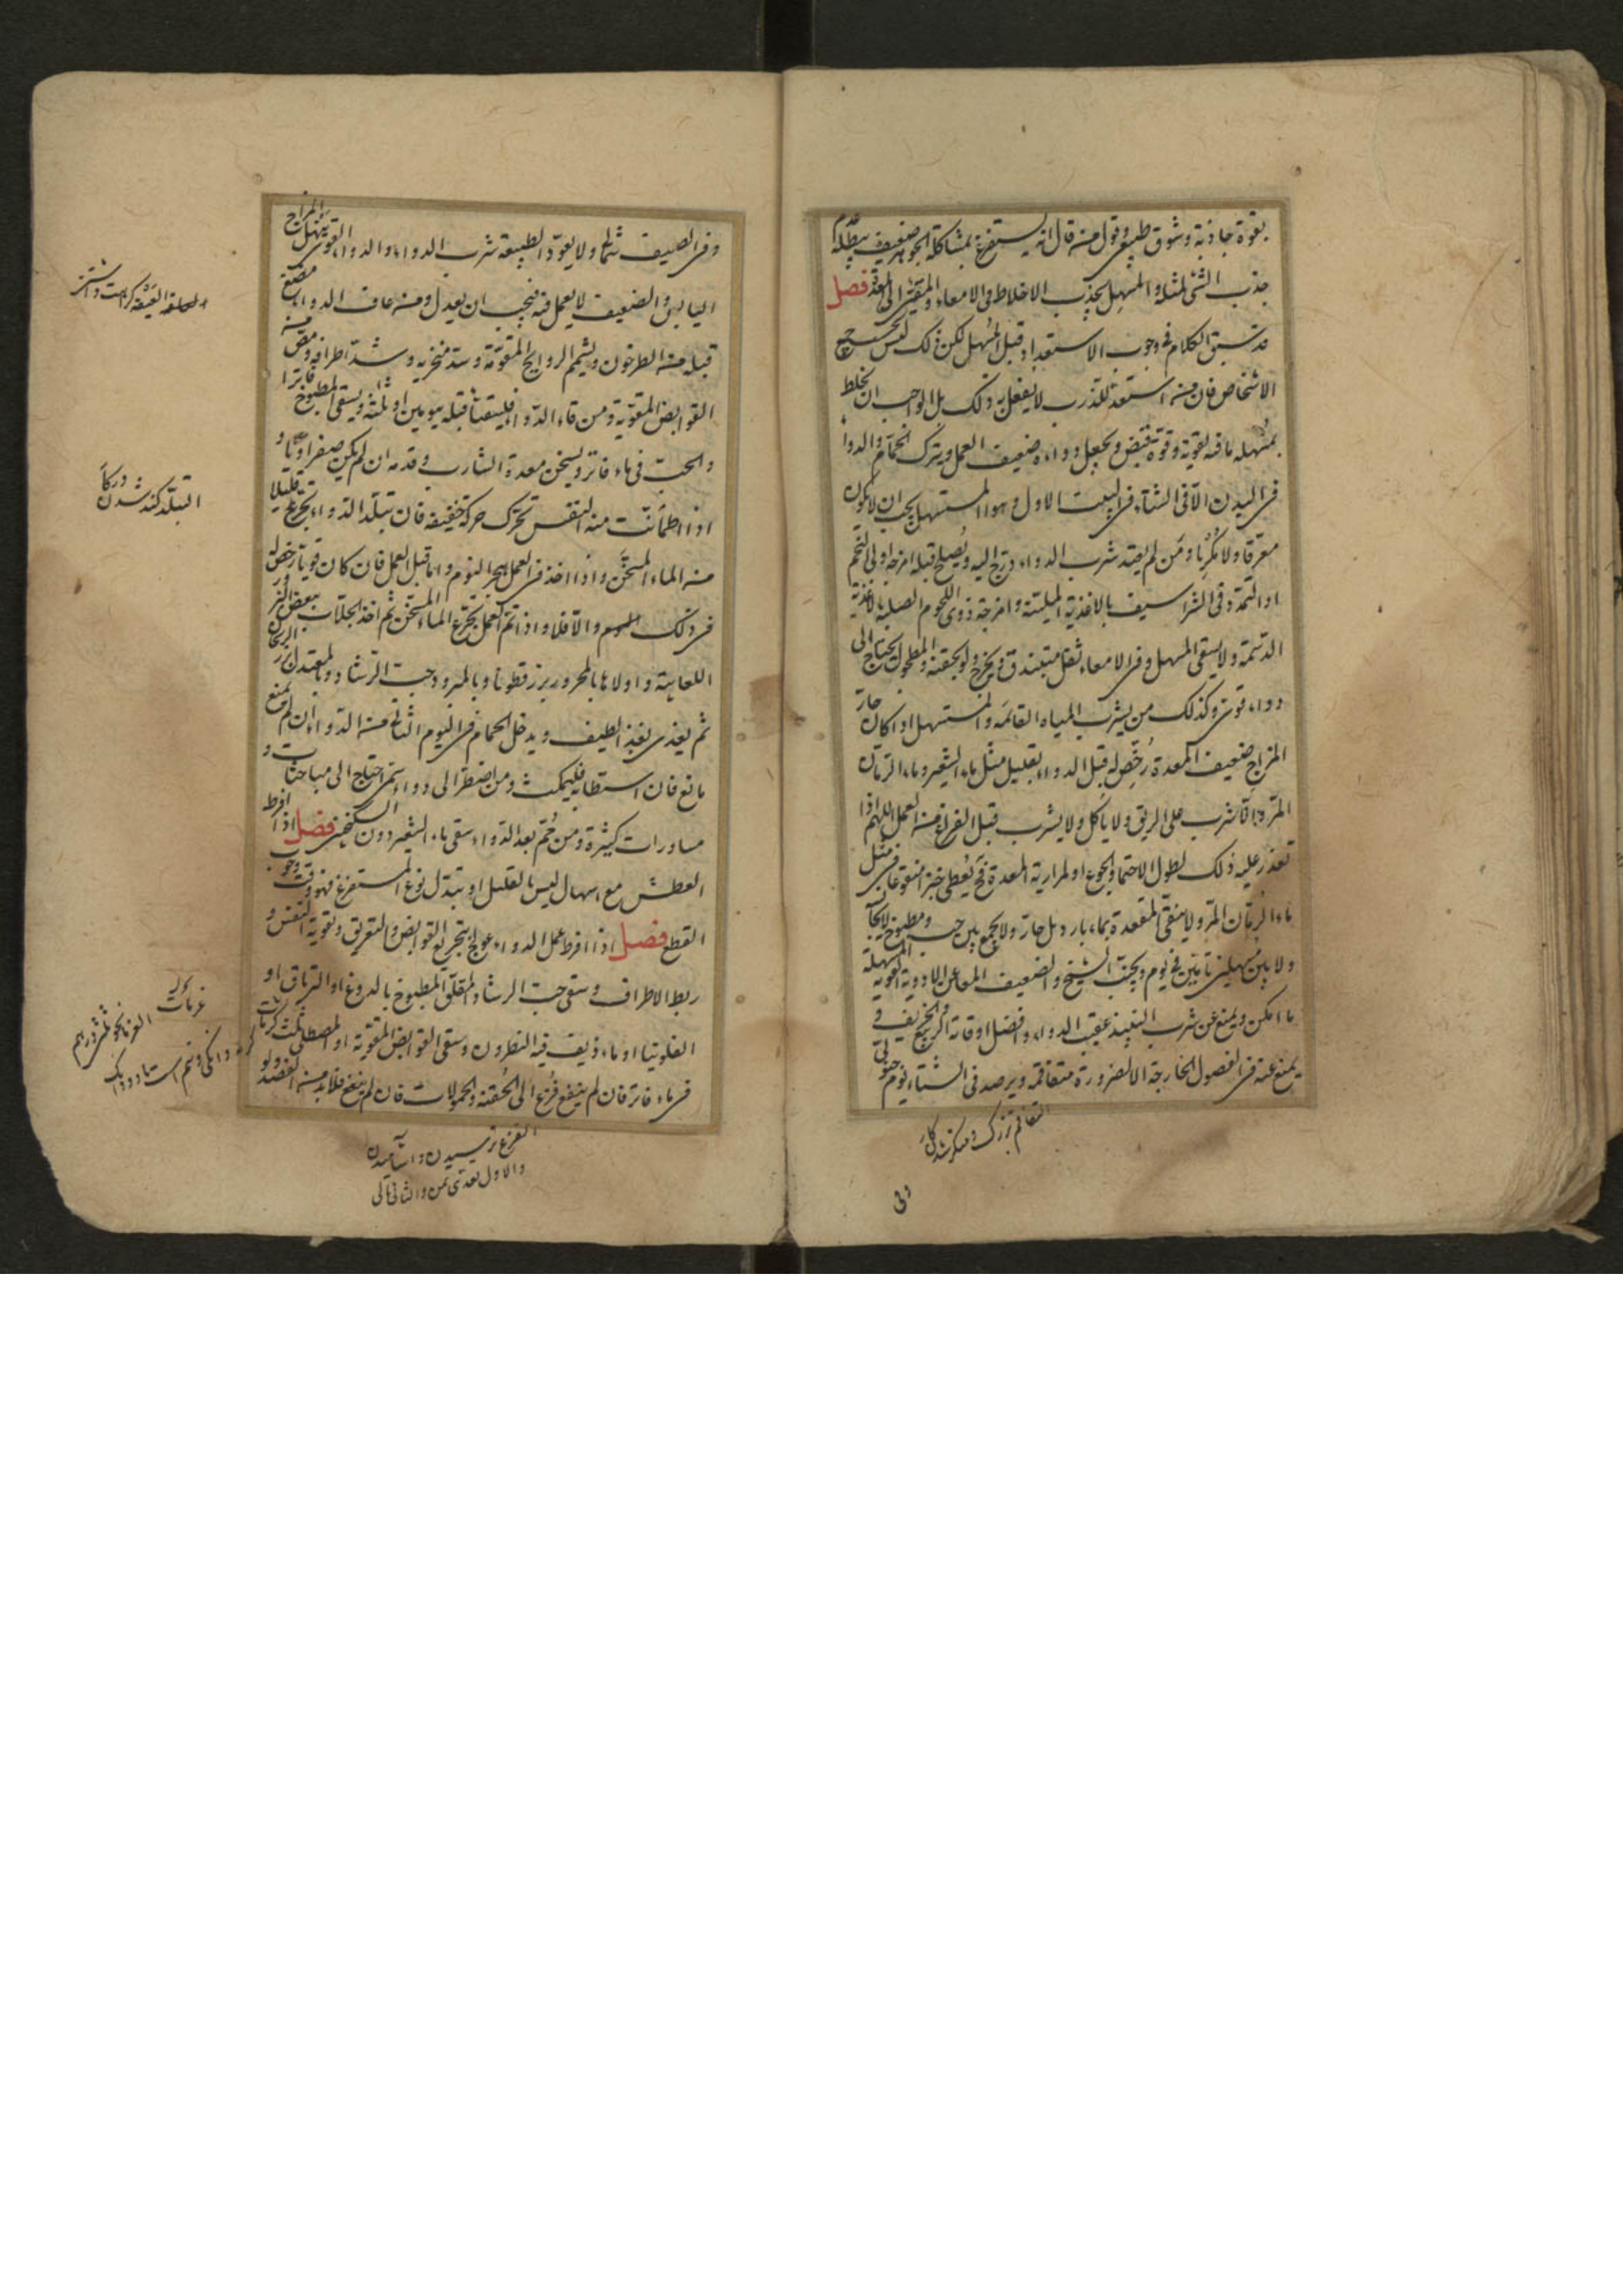 بقوة جاذبة وشوق طبيعي وقول من قال انه يستفرغ بمشاكلة الجوهر ضعيف يبطله عدم
جذب الشئ لمثله والمسهل يجذب الاخلاط الى الامعاء والمقيئ الى المعدة فصل
قد سبق الكلام في وجوب الاستعداد قبل المسهل لكن ذلك ليس بحسب جميع
الاشخاص فان من استعد للذرب لا يفعل به ذلك بل الواجب ان يخلط
بمسهله ما فيه تقوية وقوة قبض ويجعل دواءه ضعيف العمل ويترك الحمام والدواء
في البدن الا في الشتاء في البيت الاول وهواء المستسهل يجب ان لا يكون
معرقا ولا مكربا ومن لم يعتد شرب الدواء درج اليه ويصلح قبله امزجة اولى التخم
او التمدد في الشراسيف بالاغذية الملينة وامزجة ذوى اللحوم الصلبة بالاغذية
الدسمة ولا يسقى المسهل وفي الامعاء ثقل متبندق ويخرج ولو بحقنة والمطحول يحتاج الى
دواء قوى وكذلك من يشرب المياه القائمة والمستسهل اذا كان حار
المزاج ضعيف المعدة رخص له قبل الدواء بقليل مثل ماء الشعير وماء الرمان
المز والا شرب على الريق ولا ياكل ولا يشرب قبل الفراغ من العمل اللهم اذا
تعذر عليه ذلك لطول الاحتماء والجوع او لمرارية المعدة فح يعطى خبزا منقوعا في مثل
ماء الرمان المز ولا ينقى المقعدة بماء بارد بل حار ولا يجمع بين حب ومطبوخ
ولا بين مسهلين تامين في يوم ويجنب الشيخ والضعيف المعا عن الادوية القوية المسهلة
ما امكن ويمنع عن شرب النبيذ عقيب الدواء وافضل اوقاته الربيع والخريف و
يمنع عنه في الفصول الخارجة الا لضرورة متفاقمة ويرصد في الشتاء يوم جنوبي
التفاقم بزرگ ومنكر شدن كار
وفى
وفي الصيف شمالي ولا يعود الطبيعة شرب الدواء والدواء القوى ينهك المزاج
اليابس والضعيف لا يعمل فيه فيجب ان يعدل ومن عاف الدواء مضغ
قبله من الطرخون ويشمم الروايح المقوية وسد منخريه وشد اطرافه ومص من
القوابض المقوية ومن قاء الدواء فليتقيأ قبله بيومين او ثلثة ويسقى المطبوخ فاترا
والحب في ماء فاتر ويسخن معدة الشارب وقدمه ان لم يكن صفراويا و
اذا اطمأنت منه النفس تحرك حركة خفيفة فان تبلد الدواء تجرع قليلا
من الماء المسخن واذا اخذ في العمل هجر النوم واما قبل العمل فان كان قويا رخص له
في ذلك النوم والا فلا واذا تم العمل تجرع الماء المسخن ثم اخذ الجلاب ببعض البزور
اللعابية واولاها بالمحرور بزر قطونا وبالمبرود حب الرشاد وبالمعتدل بزر الريحان
ثم يغذى بغذاء لطيف ويدخل الحمام في اليوم الثانى من الدواء ان لم يمنع
مانع فان استطابه فليمكث ومن اضطر الى دواء سمى احتاج الى مباحثات و
مساورات كثيرة ومن حم بعد الدواء سقى ماء الشعير دون السكنجبين فصل اذا افرط
العطش مع اسهال ليس بالقليل او تبدل نوع المستفرغ فهو وقت وجوب
القطع فصل اذا افرط عمل الدواء عولج بتجريع القوابض والتعريق وتقوية النفس و
ربط الاطراف وسقى حب الرشاد المقلو المطبوخ بالدوغ او الترياق او
الفلونيا او ماء ذيف فيه النطرون وسقى القوابض المقوية او المصطكى ثلث كرمات
في ماء فاتر فان لم ينفع فزع الى الحقنة والحمولات فان لم ينفع فلابد من الفصد ولو
العيفة كراهت داشتن
التبلد كند شدن
الفزع ترسيدن
والاول تعدى بمن والثانى بالى